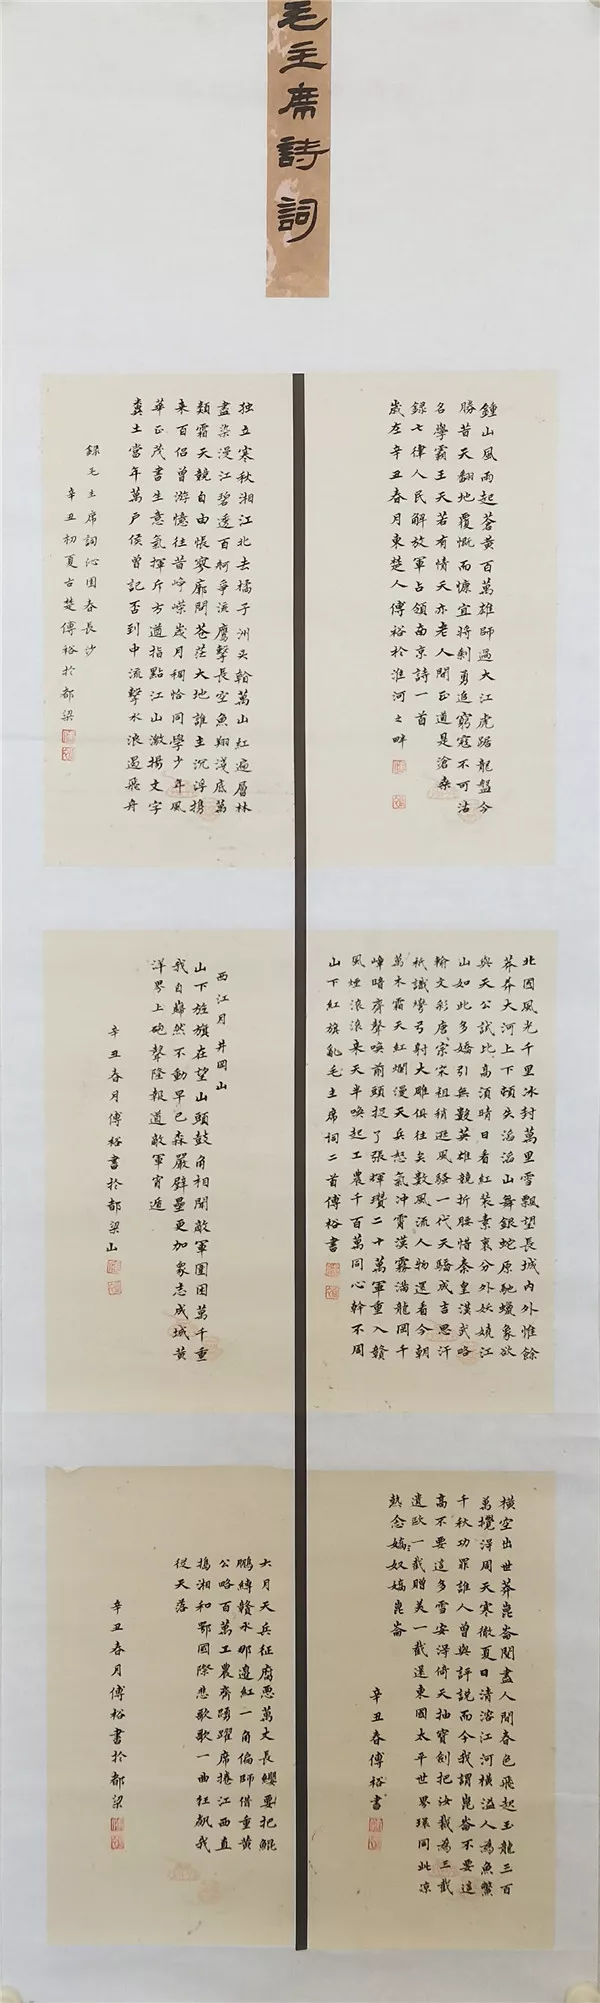 毛主席詩詞
鍾山風雨起蒼黃百萬雄師過大江虎踞龍盤今
勝昔天翻地覆慨而慷宜將剩勇追窮寇不可沽
名學霸王天若有情天亦老人間正道是滄桑
録七律人民解放軍占領南京詩一首
歲在辛丑春月東楚人傅裕於淮河之畔
独立寒秋湘江北去橘子洲头看萬山紅遍層林
盡染漫江碧透百柯爭流鷹擊長空魚翔淺底萬
類霜天競自由悵寥廓問蒼茫大地誰主沉浮携
来百侣曾游憶往昔崢嶸歲月稠恰同學少年風
華正茂書生意氣揮斥方遒指點江山激揚文字
糞土當年萬户侯曾記否到中流擊水浪遏飛舟
録毛主席詞沁园春長沙
辛丑初夏古楚傅裕於都梁
北國風光千里冰封萬里雪飄望長城内外惟餘
莽莽大河上下頓失滔滔山舞銀蛇原馳蠟象欲
與天公試比高須晴日看紅裝素裹分外妖嬈江
山如此多嬌引無數英雄競折腰惜秦皇漢武略
輸文彩唐宗宋祖稍遜風騷一代天驕成吉思汗
祇識彎弓射大雕俱往矣數風流人物還看今朝
萬木霜天紅爛漫天兵怒氣冲霄漢霧满龍岡千
嶂暗齊聲唤前頭捉了張輝瓚二十萬軍重入贛
風煙滾滾来天半唤起工農千百萬同心幹不周
山下紅旗亂毛主席詞二首傅裕書
西江月井岡山
山下旌旗在望山頭鼓角相聞敵軍圍困萬千重
我自巋然不動早已森嚴壁壘更加衆志成城黄
洋界上砲聲隆報道敵軍宵遁
辛丑春月傅裕書於都梁山
橫空出世莽崑崙閲盡人間春色飛起玉龍三百
萬攪得周天寒徹夏日消溶江河横溢人為魚鱉
千秋功罪誰人曾與評説而今我謂崑崙不要這
高不要這多雪安得倚天抽寶劍把汝裁為三截
遺歐一截贈美一截還東國太平世界環同此凉
熱念嬌奴嬌崑崙
辛丑春傅裕書
六月天兵征腐惡萬丈長纓要把鯤
鵬縛贛水那邊紅一角偏師借重黄
公略百萬工農齊踴躍席捲江西直
搗湘和鄂國際悲歌歌一曲狂飆我
從天落
辛丑春月傅裕書於都梁